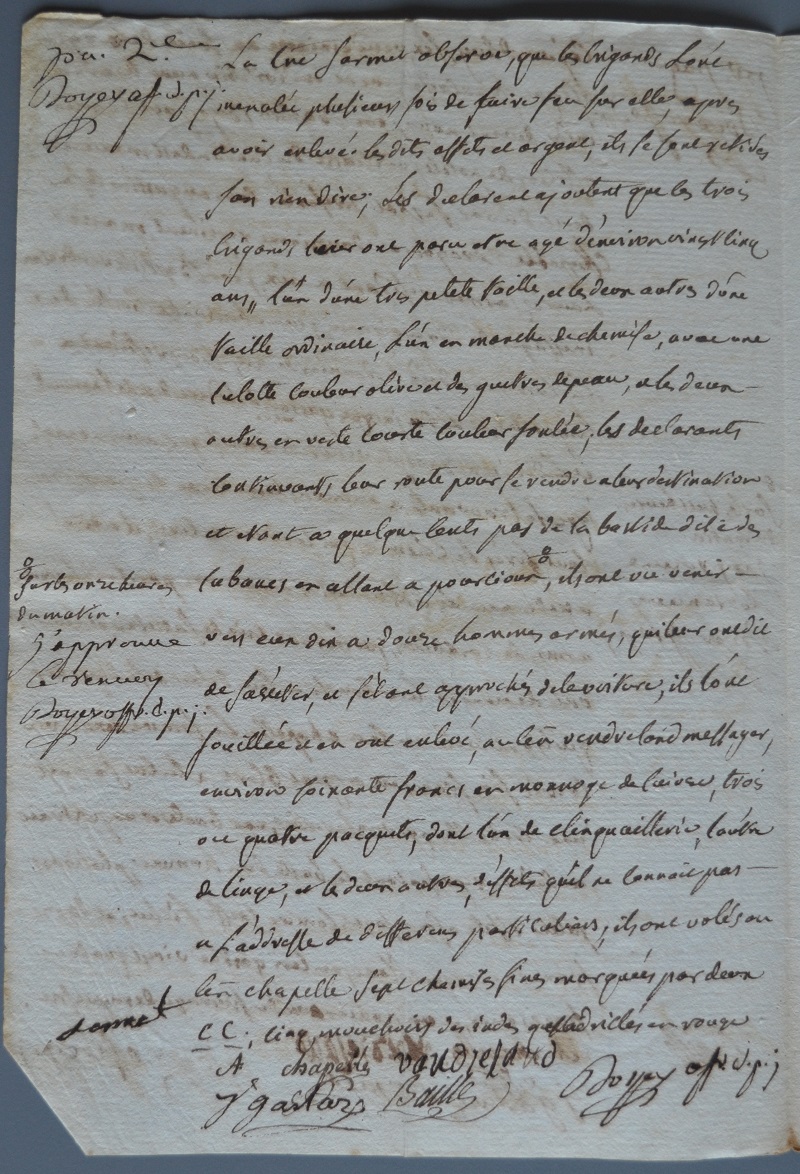 pa. 2e
Boyer off. d. p. j.
La Cne Sermet observe, que les brigands l'ont
menalée plusieurs fois de faire feu sur elle, apres
avoir enlevé lesdits effets et argent, ils se sont retirés
san rien dire; Les declarent ajoutent que les trois
brigands leur ont paru etre agé d'environ vingt cinq
ans, l'un d'une tres petite taille, et les deux autres d'une
taille ordinaire, l'un en manche de chemise, avec une
culotte couleur olive et des guetres de peau, et les deux
autres en veste courte couleur foncée; les declarants
continuants leur route pour se rendre a leur destination
et etant a quelque cents pas de la bastide dite des
cabanes en allant a pourcioux, ils ont vu venir
sur les onze heures
du matin.
J'approuve
le renvoy
Boyer off. d. p. j.
vers eux dix a douze hommes armés, qui leur ont dit
de s'arreter, et s'etant approchés de la voiture, ils l'ont
fouillée et en ont enlevé, au Cen vendreland messager,
environ soixante francs en monnoye de cuivre, trois
ou quatre pacquets, dont l'un de clinquaillerie, l'autre
de linge, et les deux autres d'effets qu'il ne connoit pas
a l'addresse de differens particuliers, ils ont volés au
Cen chapelle sept chemises fines marquées par deux
CC; cinq mouchoirs des indes quadrillés en rouge
Sermet
A chapelle vandreland
Baille
Boyer off. d. p. j